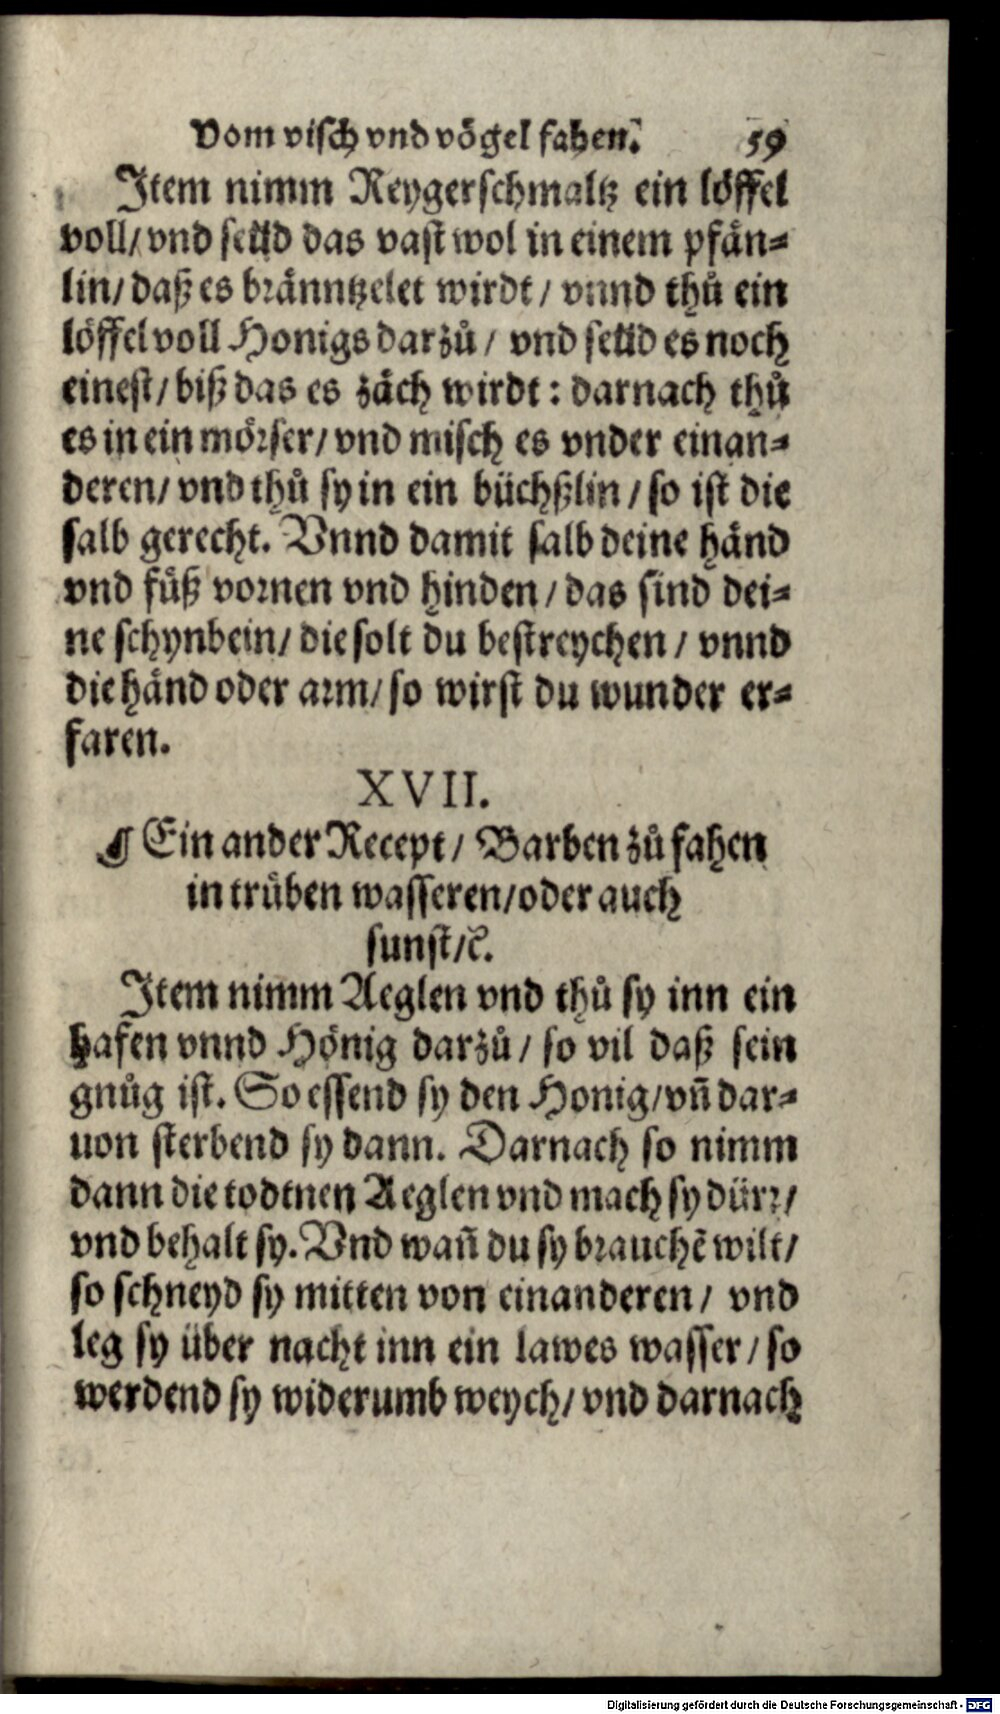 Vom visch vnd vögel fahen. 59
Item nimm Reygerschmaltz ein löffel
voll/ vnd seüd das vast wol in einem pfän-
lin/ daß es bränntzelet wirdt/ vnnd thů ein
löffel voll Honigs darzů/ vnd seüd es noch
einest/ biß das es zäch wirdt: darnach thů
es in ein mörser/ vnd misch es vnder einan-
deren/ vnd thů sy in ein büchßlin/ so ist die
salb gerecht. Vnnd damit salb deine händ
vnd füß vornen vnd hinden/ das sind dei-
ne schynbein/ die solt du bestreychen/ vnnd
die händ oder arm/ so wirst du wunder er-
faren.
XVII.
¶ Ein ander Recept/ Barben zů fahen
in trüben wasseren/ oder auch
sunst/ ꝛc.
Item nimm Aeglen vnd thů sy inn ein
hafen vnnd Hönig darzů/ so vil daß sein
gnůg ist. So essend sy den Honig/ vñ dar-
uon sterbend sy dann. Darnach so nimm
dann die todtnen Aeglen vnd mach sy dürr/
vnd behalt sy. Vnd wañ du sy brauchē wilt/
so schneyd sy mitten von einanderen/ vnd
leg sy über nacht inn ein lawes wasser/ so
werdend sy widerumb weych/ vnd darnach
Digitalisierung gefördert durch die Deutsche Forschungsgemeinschaft - DFG